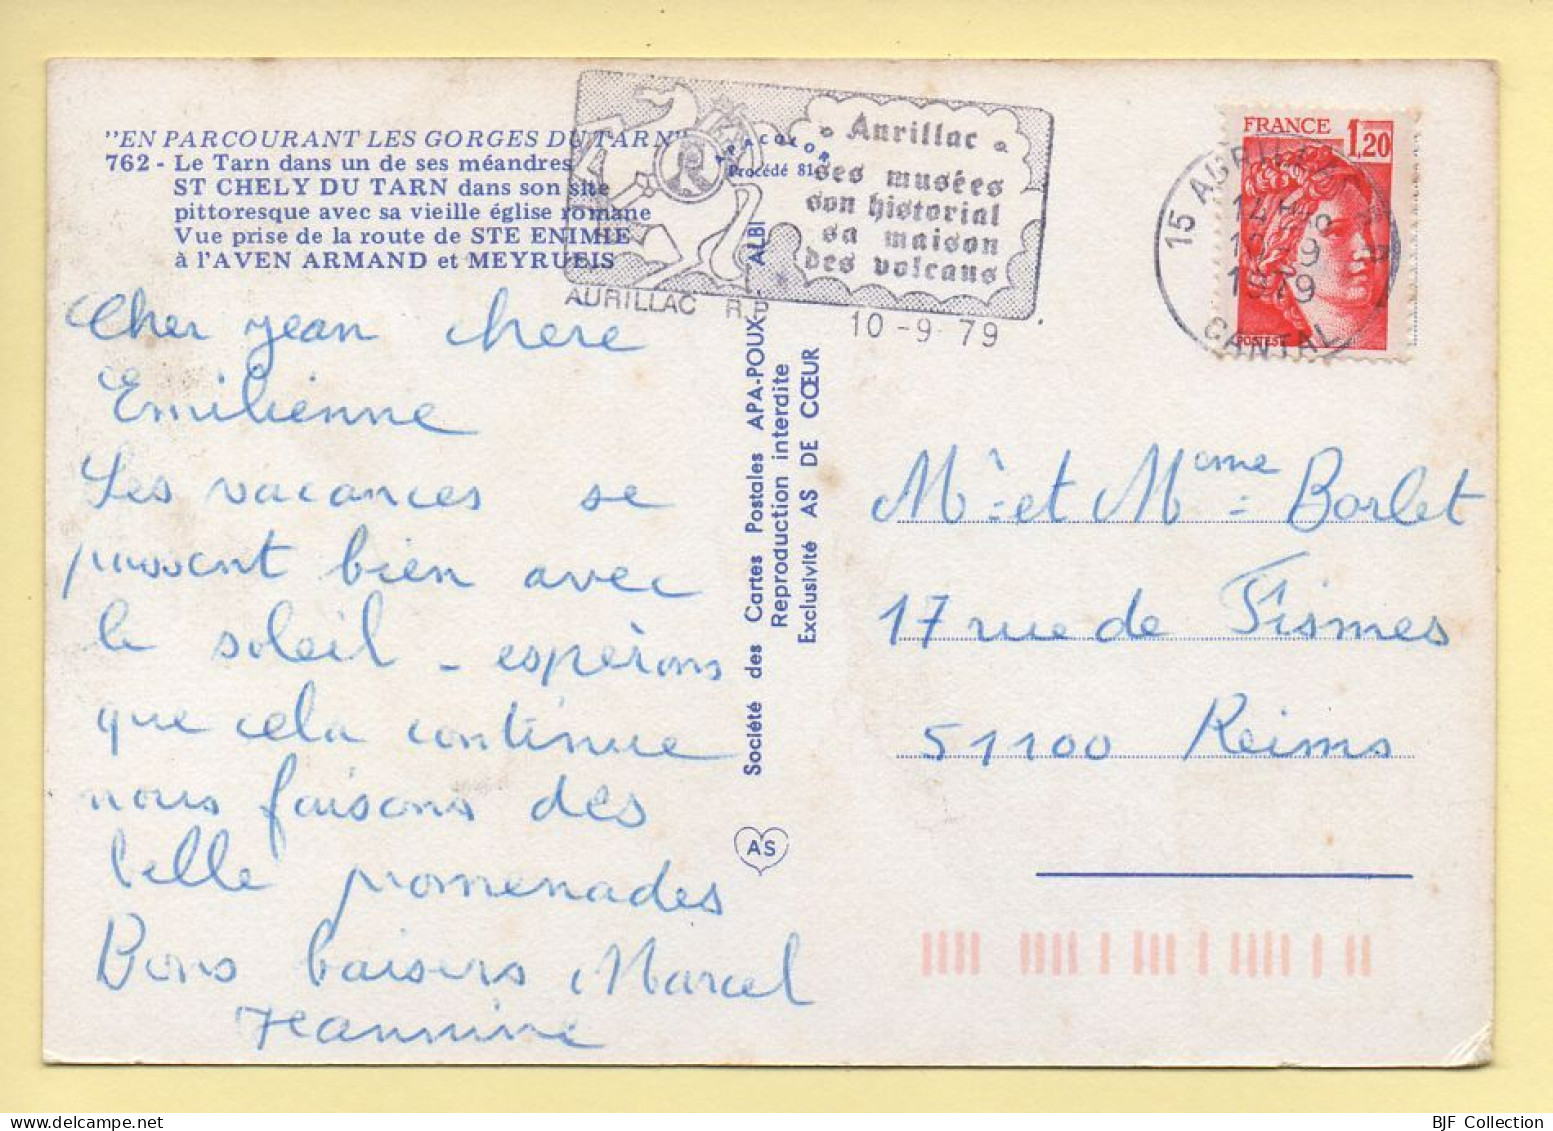 "EN PARCOURANT LES GORGES DU TARN"
762 - Le Tarn dans un de ses méandres
ST CHELY DU TARN dans son site
pittoresque avec sa vieille église romane
Vue prise de la route de STE ENIMIE
à l'AVEN ARMAND et MEYRUEIS
APACOLOR
Procédé 81
Aurillac
ses musées
son historial
sa maison
des volcans
AURILLAC R.P
10-9-79
FRANCE 1,20
15 AURILLAC R.P
14H
10-9
1979
CANTAL
Cher Jean chere
Emilienne
Les vacances se
passent bien avec
le soleil - espèrons
que cela continue
nous faisons des
belle promenades
Bons baisers Marcel
Jeannine
Société des Cartes Postales APA-POUX - ALBI
Reproduction interdite
Exclusivité AS DE CŒUR
AS
Mr et Mme Borlet
17 rue de Fismes
51100 Reims
BJF Collection